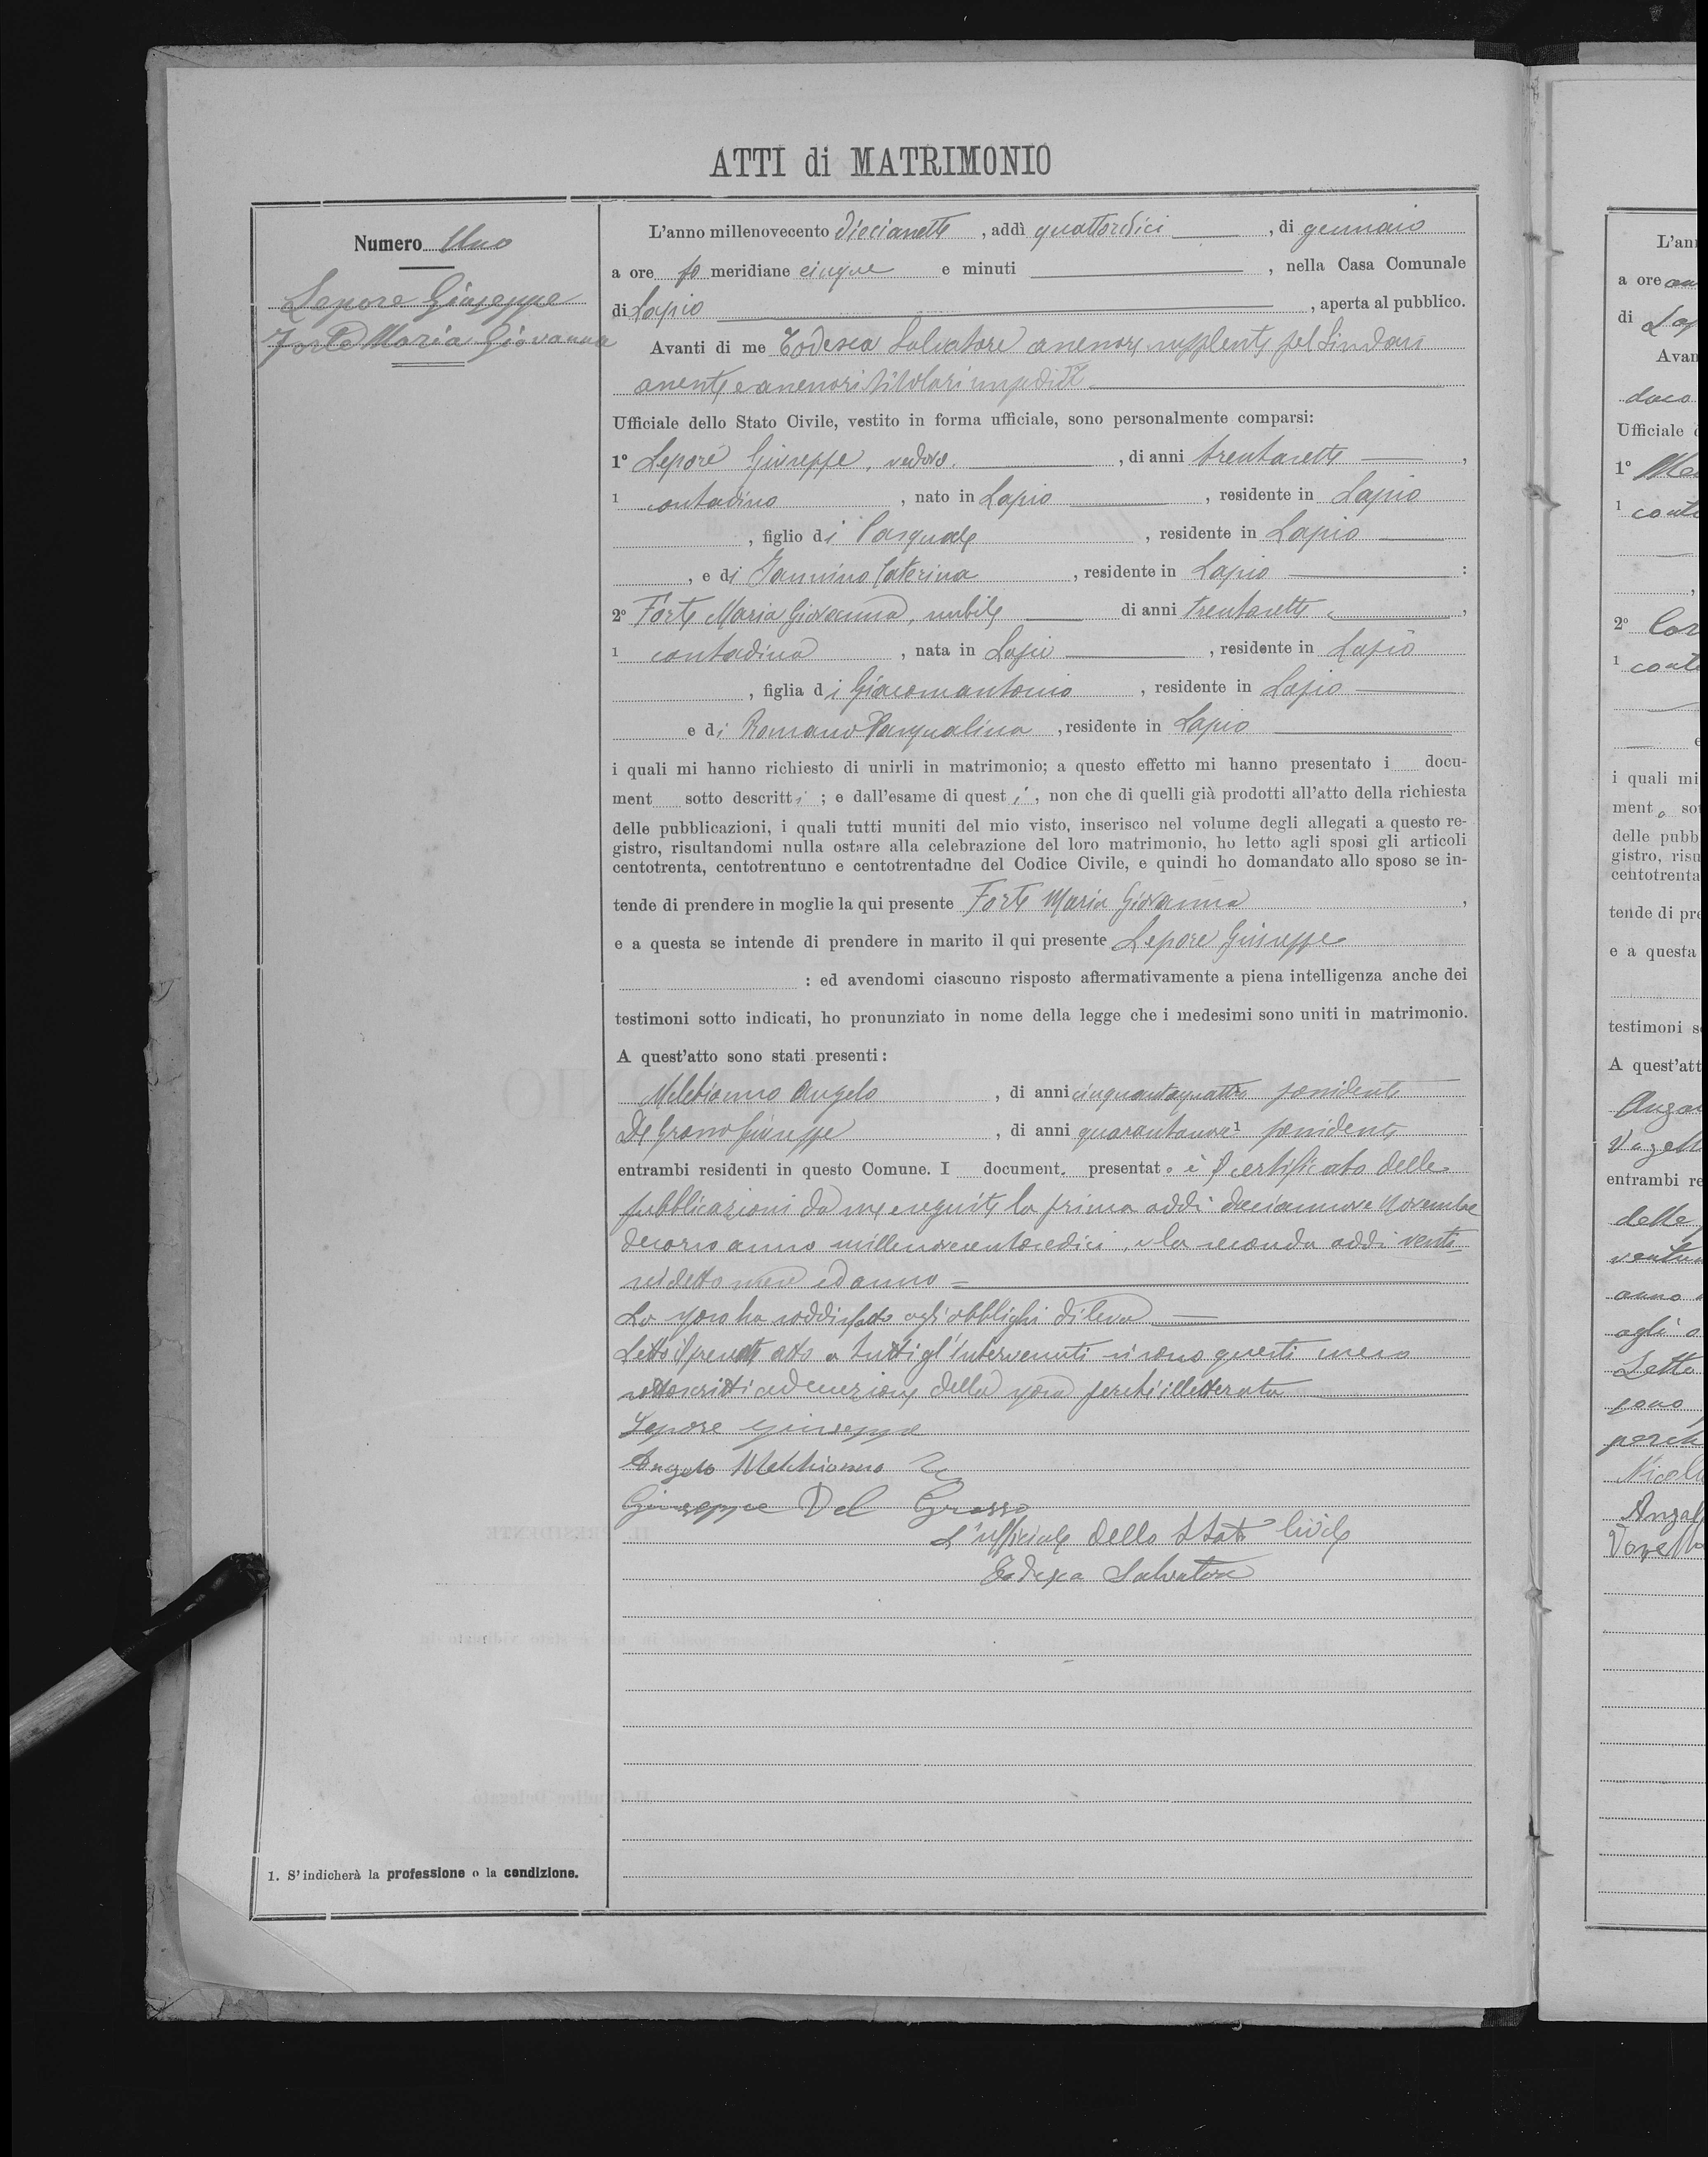 ATTI di MATRIMONIO
Numero Uno
Lepore Giuseppe
Forte Maria Giovanna
L'anno millenovecento diecianette, addì quattordici, di gennaio
a ore po meridiane cinque e minuti, nella Casa Comunale
di Lapio, aperta al pubblico.
Avanti di me Todesca Salvatore assessore supplente pel Sindaco
assente e assessori titolari impediti
Ufficiale dello Stato Civile, vestito in forma ufficiale, sono personalmente comparsi:
1º Lepore Giuseppe, vedovo, di anni trentasette,
1 contadino, nato in Lapio, residente in Lapio
, figlio di Pasquale, residente in Lapio
, e di Iannino Caterina, residente in Lapio :
2º Forte Maria Giovanna, nubile di anni trentasette,
1 contadina, nata in Lapio, residente in Lapio
, figlia di Giacomantonio, residente in Lapio
e di Romano Pasqualina, residente in Lapio
i quali mi hanno richiesto di unirli in matrimonio; a questo effetto mi hanno presentato i docu-
ment sotto descritti ; e dall'esame di questi, non che di quelli già prodotti all'atto della richiesta
delle pubblicazioni, i quali tutti muniti del mio visto, inserisco nel volume degli allegati a questo re-
gistro, risultandomi nulla ostare alla celebrazione del loro matrimonio, ho letto agli sposi gli articoli
centotrenta, centotrentuno e centotrentadue del Codice Civile, e quindi ho domandato allo sposo se in-
tende di prendere in moglie la qui presente Forte Maria Giovanna,
e a questa se intende di prendere in marito il qui presente Lepore Giuseppe
: ed avendomi ciascuno risposto affermativamente a piena intelligenza anche dei
testimoni sotto indicati, ho pronunziato in nome della legge che i medesimi sono uniti in matrimonio.
A quest'atto sono stati presenti:
Melchionno Angelo, di anni cinquantaquattro possidente
Del Grosso Giuseppe, di anni quarantanove 1 possidente
entrambi residenti in questo Comune. I document. presentato è il certificato delle
pubblicazioni da me eseguite la prima addì diciannove Novembre
decorso anno millenovecentosedici, e la seconda addì venti
sei detto mese ed anno =
Lo sposo ha soddisfatto agli obblighi di leva
Letto il presente atto a tutti gl'intervenuti si sono questi meco
sottoscritti ad eccezione della sposa perché illetterata
Lepore Giuseppe
Angelo Melchionno
Giuseppe Del Grosso
L'ufficiale dello Stato Civile
Todesca Salvatore
1. S'indicherà la professione o la condizione.
L'an
a ore an
di Lap
Avan
Ufficiale
1º
1 cont
2º
1 cont
i quali mi
mento so
delle pubb
gistro, risu
centotrenta
tende di pre
e a questa
testimoni s
A quest'att
entrambi re
delle
anno
agli o
Letto
sono
perch
Nicola